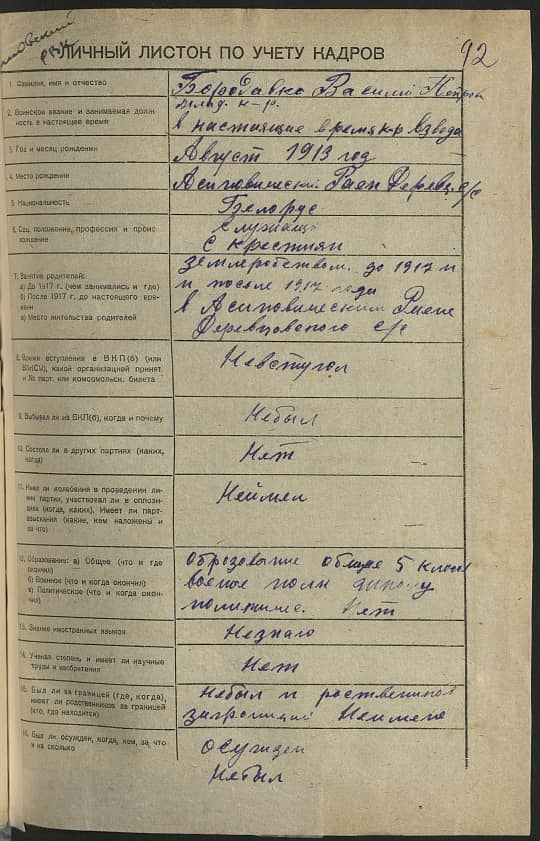 РВК
ЛИЧНЫЙ ЛИСТОК ПО УЧЕТУ КАДРОВ
92
1. Фамилия, имя и отчество
Бородавко Василий
2. Воинское звание и занимаемая долж-
ность в настоящее время
к-р.
в настоящие время к-р взвода
3. Год и месяц рождения
Август 1913 год
4. Место рождения
Асиповический Раен с/с
5. Национальность
Белорус
6. Соц. положение, профессия и проис-
хождение
Служащий
С крестиян
7. Занятие родителей:
а) До 1917 г. (чем занимались и где)
б) После 1917 г. до настоящего вре-
мени
в) Место жительства родителей
землеробством. до 1917 и
и после 1917 года
в Асиповическим Раене
Деревцовского с/с
8. Время вступления в ВКП(б) (или
ВЛКСМ), какой организацией принят
и № парт. или комсомольск. билета
Невступол
9. Выбывал ли из ВКП(б), когда и почему
Небыл
10. Состоял ли в других партиях (каких,
когда)
Нет
11. Имел ли колебания в проведении ли-
нии партии, участвовал ли в оппози-
циях (когда, каких). Имеет ли парт-
взыскания (какие, кем наложены и
за что)
Неймел
12. Образование: а) Общее (что и где
окончил)
б) Военное (что и когда окончил)
в) Политическое (что и когда окон-
чил)
образовыние общие 5 класс
воение полк школу
Нет
13. Знание иностранных языков
Незнаю
14. Ученая степень и имеет ли научные
труды и изобретения
Нет
15. Был ли за границей (где, когда),
имеет ли родственников за границей
(кто, где находится)
Небыл и роствеников
заграницай Неимею
16. Был ли осужден, когда, кем, за что
и на сколько
осужден
Небыл